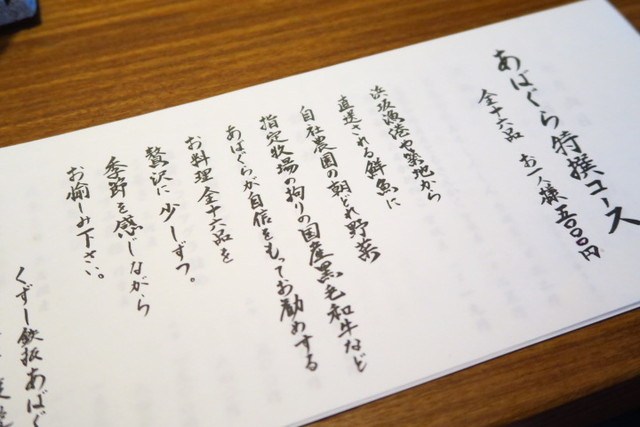 あばぐら特撰コース
全十六品 お一人様 五〇〇〇円
浜坂漁港や築地から
直送される鮮魚に
自社農園の朝どれ野菜
指定牧場の拘りの国産黒毛和牛など
あばぐらが自信をもってお勧めする
お料理全十六品を
贅沢に少しずつ。
季節を感じながら
お愉しみ下さい。
くずし鉄板あばぐ